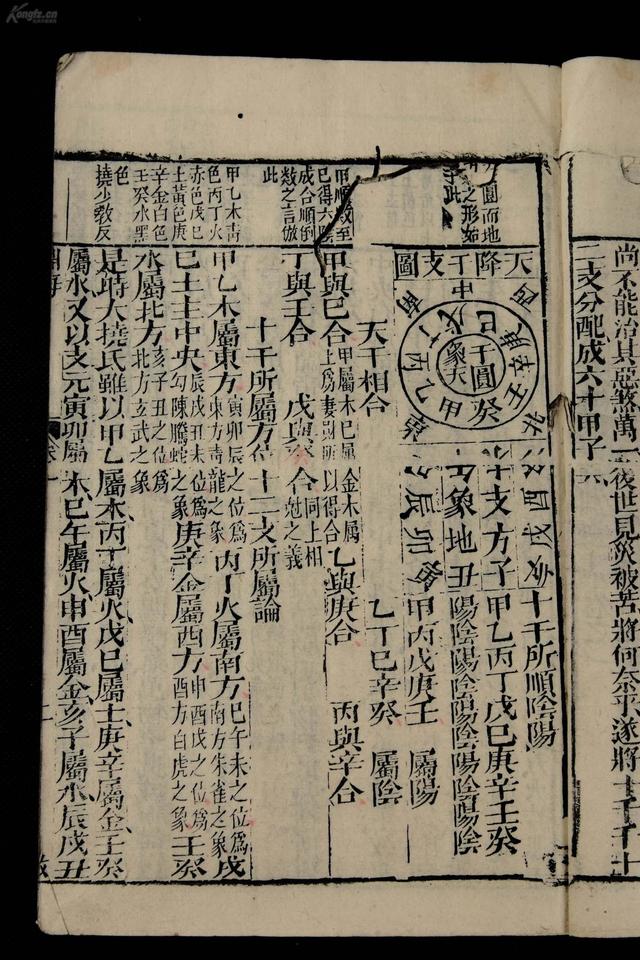 Kongfz.cn
尚不能治其惡煞萬一後世見災被苦將何奈乎遂將十干十
二支分配成六十甲子
圓而地
之形如
此
甲順數至
已得六
成合順倒
數之言倣
此
甲乙木青
色丙丁火
赤色戊已
土黃色庚
辛金白色
壬癸水黑
色
撓少教反
天降干支圖
中
南
北
干圓
象天
甲
乙
丙
丁
戊
已
庚
辛
壬
癸
十支方
象地
子
丑
卯
辰
午
未
申
酉
戌
亥
十干所順陰陽
甲乙丙丁戊已庚辛壬癸
陽陰陽陰陽陰陽陰陽陰
甲丙戊庚壬 屬陽
乙丁已辛癸 屬陰
天干相合
甲與已合 甲屬木已屬 金木屬 乙與庚合 丙與辛合
上爲妻財所以得合
丁與壬合 戊與癸合 同上相
尅之義
十干所屬方位 十二支所屬論
甲乙木屬東方 寅卯辰之位爲 丙丁火屬南方 巳午未之位爲 戊
東方青龍之象 南方朱雀之象
已土主中央 辰戌丑未位爲 庚辛金屬西方 申酉戌之位爲 壬癸
勾陳螣蛇之象 酉方白虎之象
水屬北方 亥子丑之位爲
北方玄武之象
是時大撓氏雖以甲乙屬木丙丁屬火戊已屬土庚辛屬金壬癸
屬水又以支元寅卯屬木巳午屬火申酉屬金亥子屬水辰戌丑
淵海 卷一 二